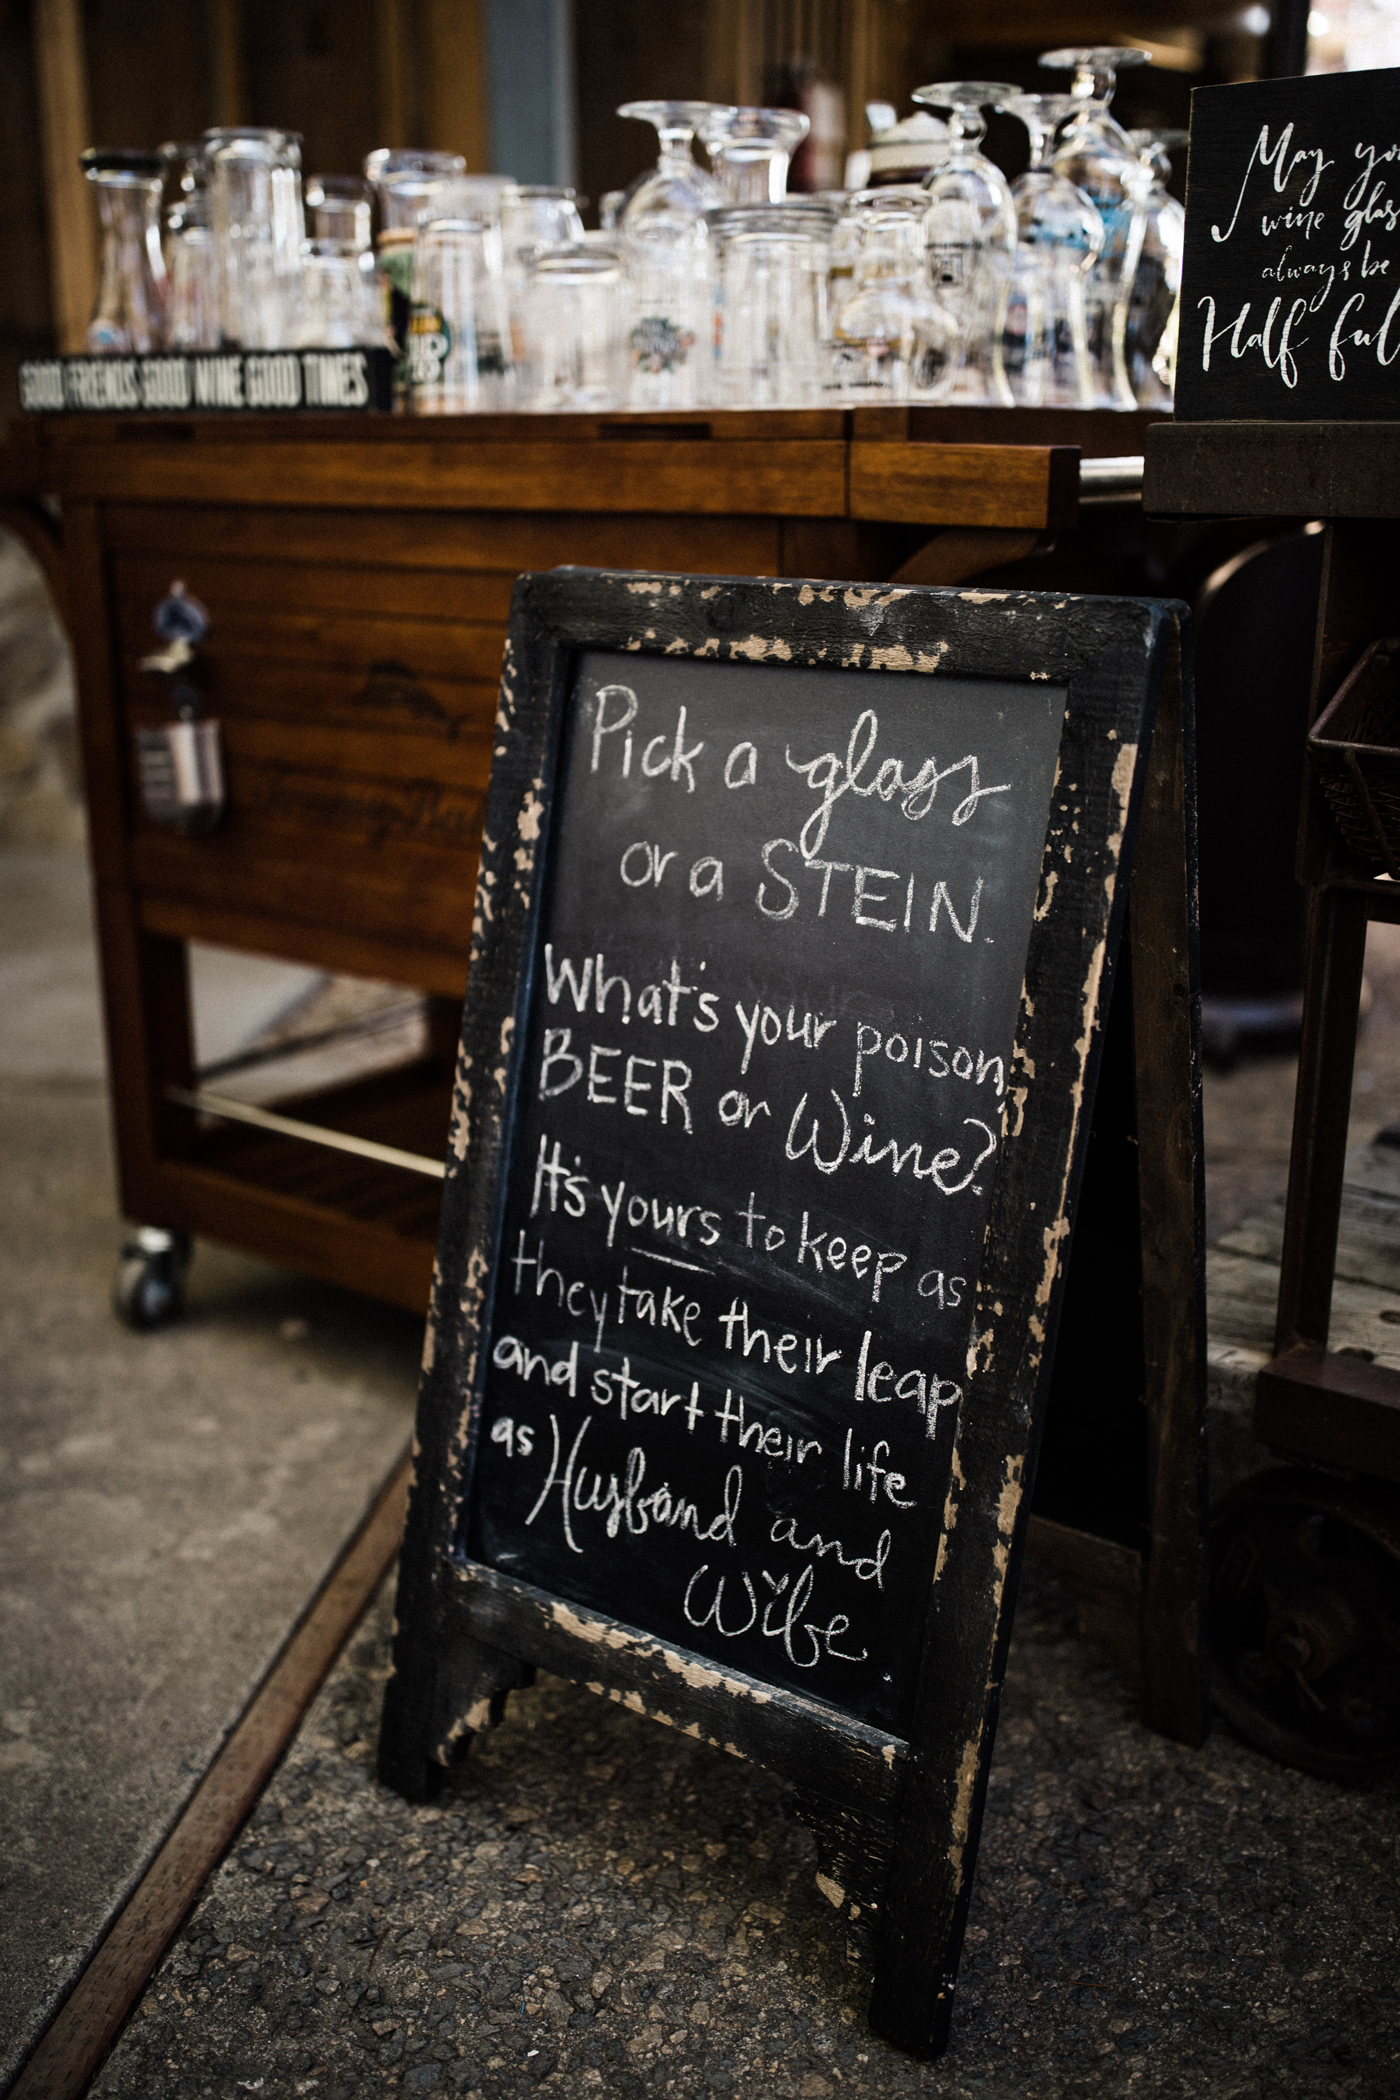 GOOD FRIENDS GOOD WINE GOOD TIMES
May yo
wine glas
always be
Half ful
Pick a glass
or a STEIN.
What's your poison,
BEER or Wine?
It's yours to keep as
they take their leap
and start their life
as Husband and
Wife.